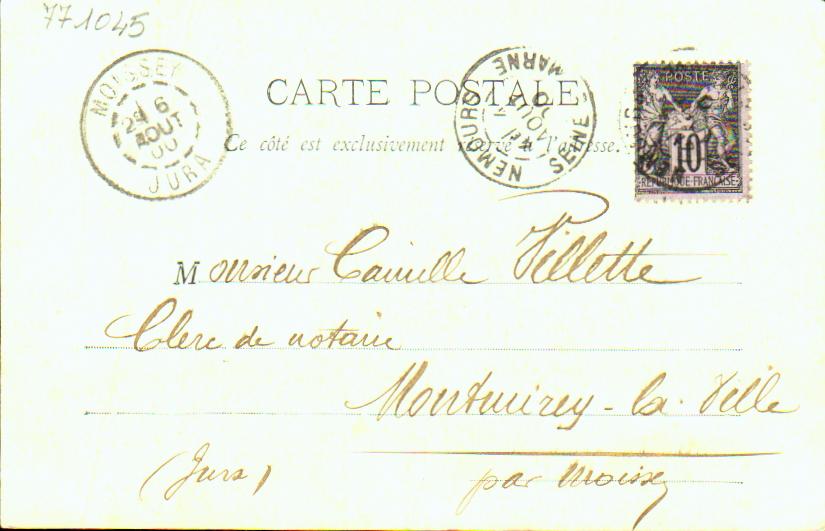 771045
MOISSEY
6
AOUT
00
JURA
CARTE POSTALE
NEMOURS
AOUT
SEINE-
MARNE
POSTE
10
REPUBLIQUE FRANÇAISE
Ce côté est exclusivement réservé à l'adresse.
Monsieur Camille Villette
Clerc de notaire
Montmirey-la-Ville
(Jura)
par Moissey